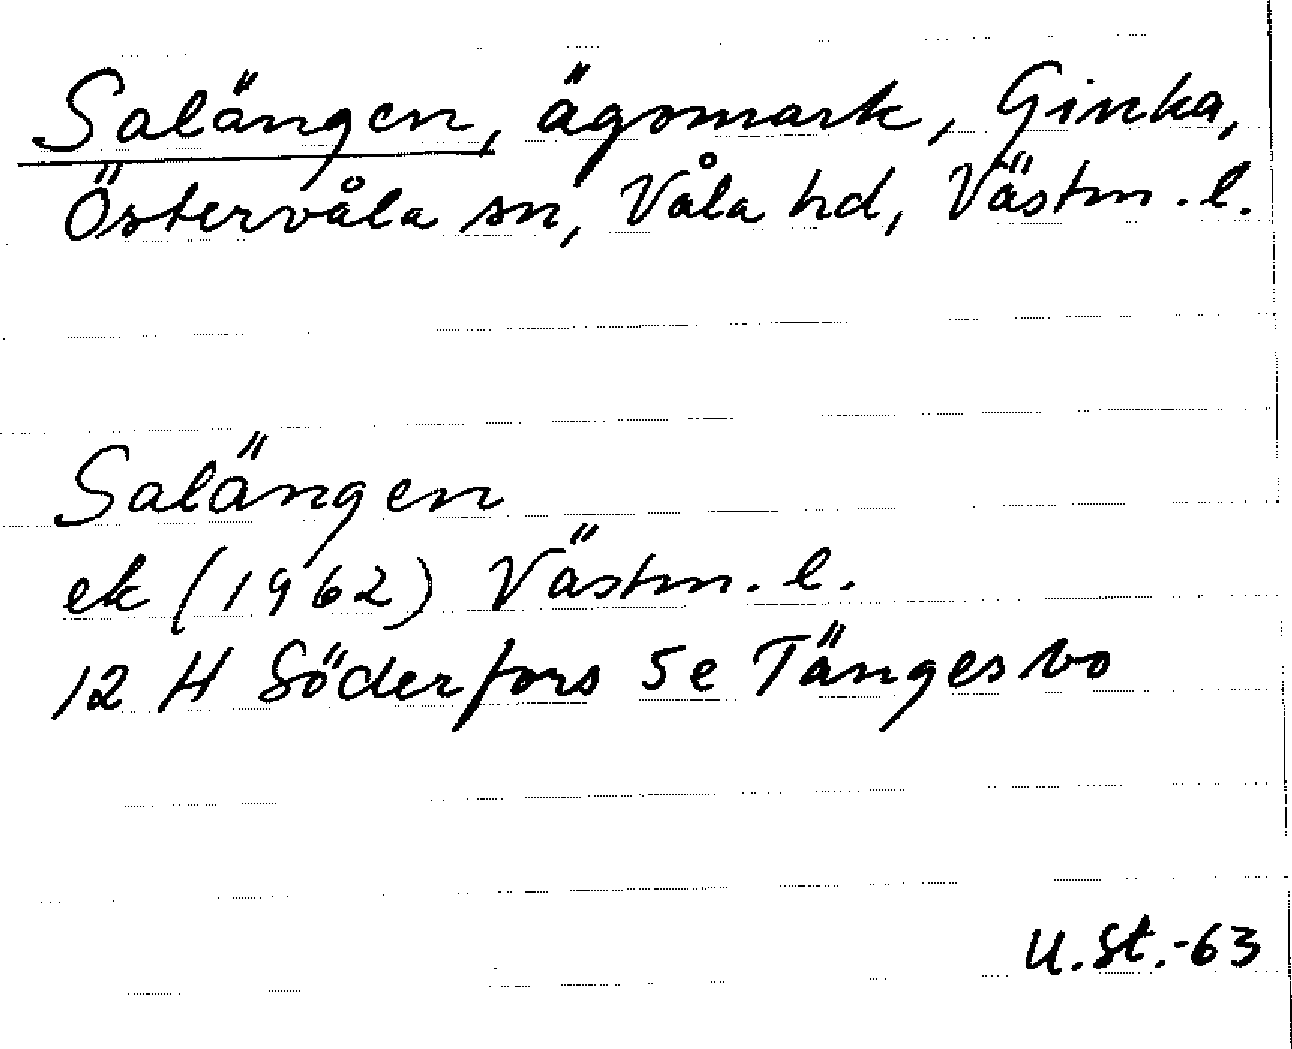 Salängen, ägomark, Ginka,
Östervåla sn, Våla hd, Västm. l.
Salängen
ek (1962) Västm. l.
12 H Söderfors 5e Tängesbo
U.St.-63